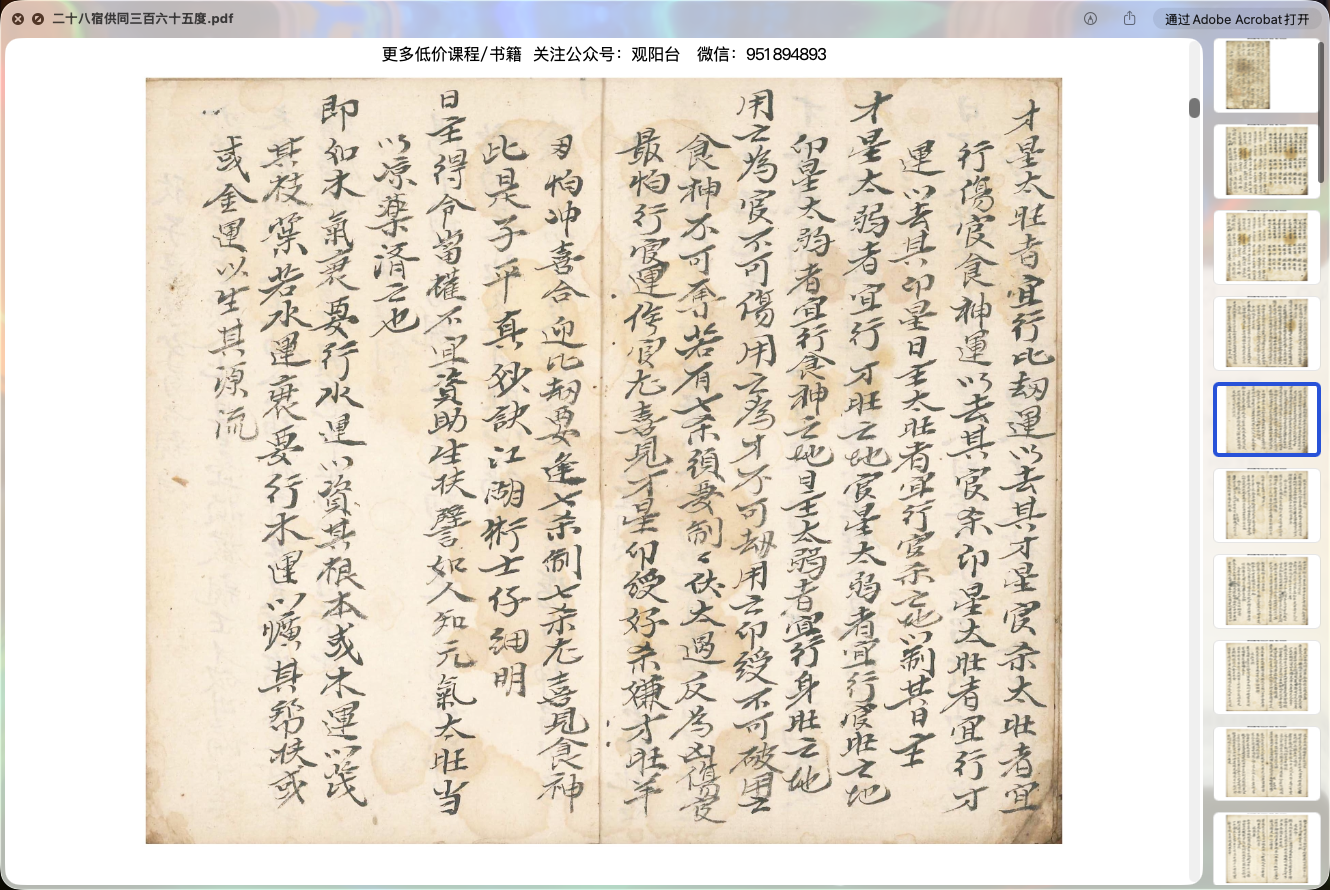 二十八宿供同三百六十五度.pdf
通过 Adobe Acrobat 打开
更多低价课程/书籍 关注公众号：观阳台 微信：951894893
才星太旺者宜行比刼運以去其才星官杀太旺者宜
行傷官食神運以去其官杀印星太旺者宜行才
運以去其印星日主太旺者宜行官杀之地以制其日主
才星太弱者宜行才旺之地官星太弱者宜行官旺之地
印星太弱者宜行食神之地日主太弱者宜行身旺之地
用之為官不可傷用之為才不可刼用之印綬不可破用之
食神不可奪若有七杀須要制〻伏太過反為凶傷官
最怕行官運傷官尤喜見才星印綬好杀嫌才旺羊
刃怕冲喜合迎比刼要逢七杀制七杀尤喜見食神
此是子平真妙訣江湖術士仔細明
日主得令當權不宜資助生扶譬如人知元氣太旺当
以凉藥濟之也
即如木氣衰要行水運以資其根本或木運以茂
其枝葉若水運衰要行水運以曠其帮扶或
或金運以生其源流